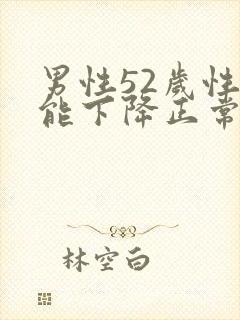 男性52歲性
能下降正常
林空白